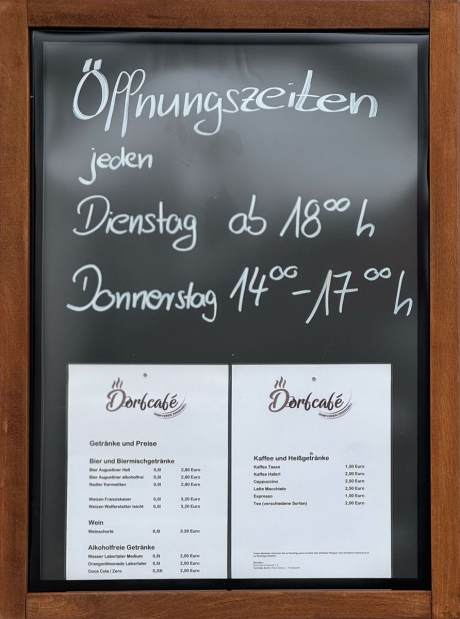 Öffnungszeiten
jeden
Dienstag ab 18⁰⁰ h
Donnerstag 14⁰⁰-17⁰⁰ h
Dorfcafé
Getränke und Preise
Bier und Biermischgetränke
Bier Augustiner Hell 0,5l 2,80 Euro
Bier Augustiner alkoholfrei 0,5l 2,80 Euro
Radler Karmeliten 0,5l 2,80 Euro
Weizen Franziskaner 0,5l 3,20 Euro
Weizen Wolferstetter leicht 0,5l 3,20 Euro
Wein
Weinschorle 0,5l 3.20 Euro
Alkoholfreie Getränke
Wasser Labertaler Medium 0,5l 2,00 Euro
Orangenlimonade Labertaler 0,5l 2,00 Euro
Coca Cola / Zero 0,33l 2,00 Euro
Dorfcafé
Kaffee und Heißgetränke
Kaffee Tasse 1,50 Euro
Kaffee Haferl 2,50 Euro
Cappuccino 2,50 Euro
Latte Macchiato 2,50 Euro
Espresso 1,50 Euro
Tee (verschiedene Sorten) 2,00 Euro